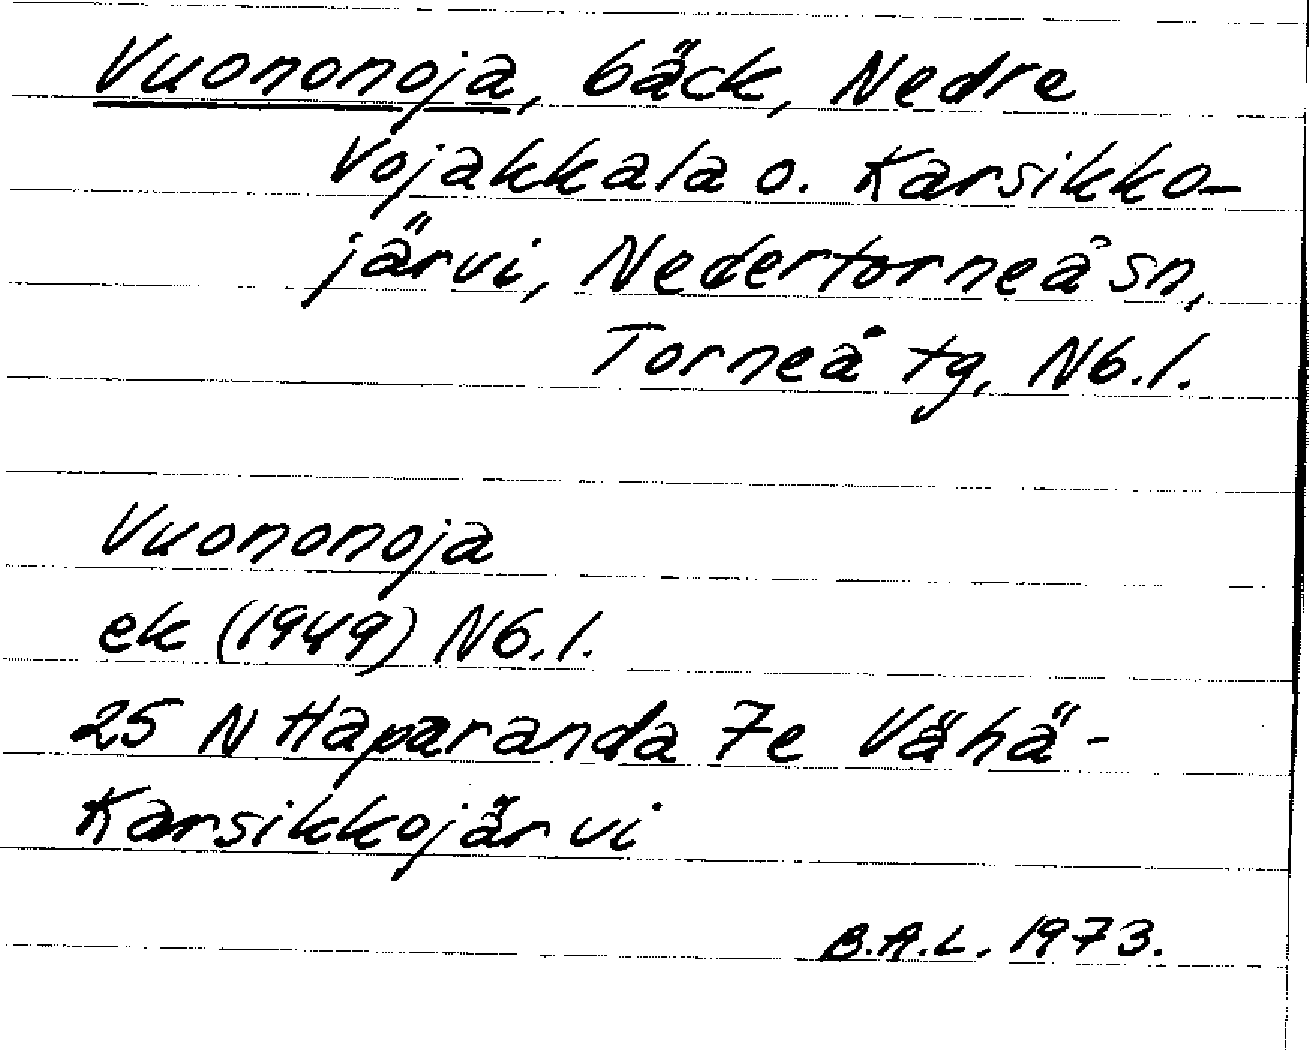 Vuononoja, bäck, Nedre
Vojakkala o. Karsikko-
järvi, Nedertorneå sn,
Torneå tg, Nb.l.
Vuononoja
ek (1949) Nb.l.
25 N Haparanda 7e Vähä-
Karsikkojärvi
B.A.L. 1973.